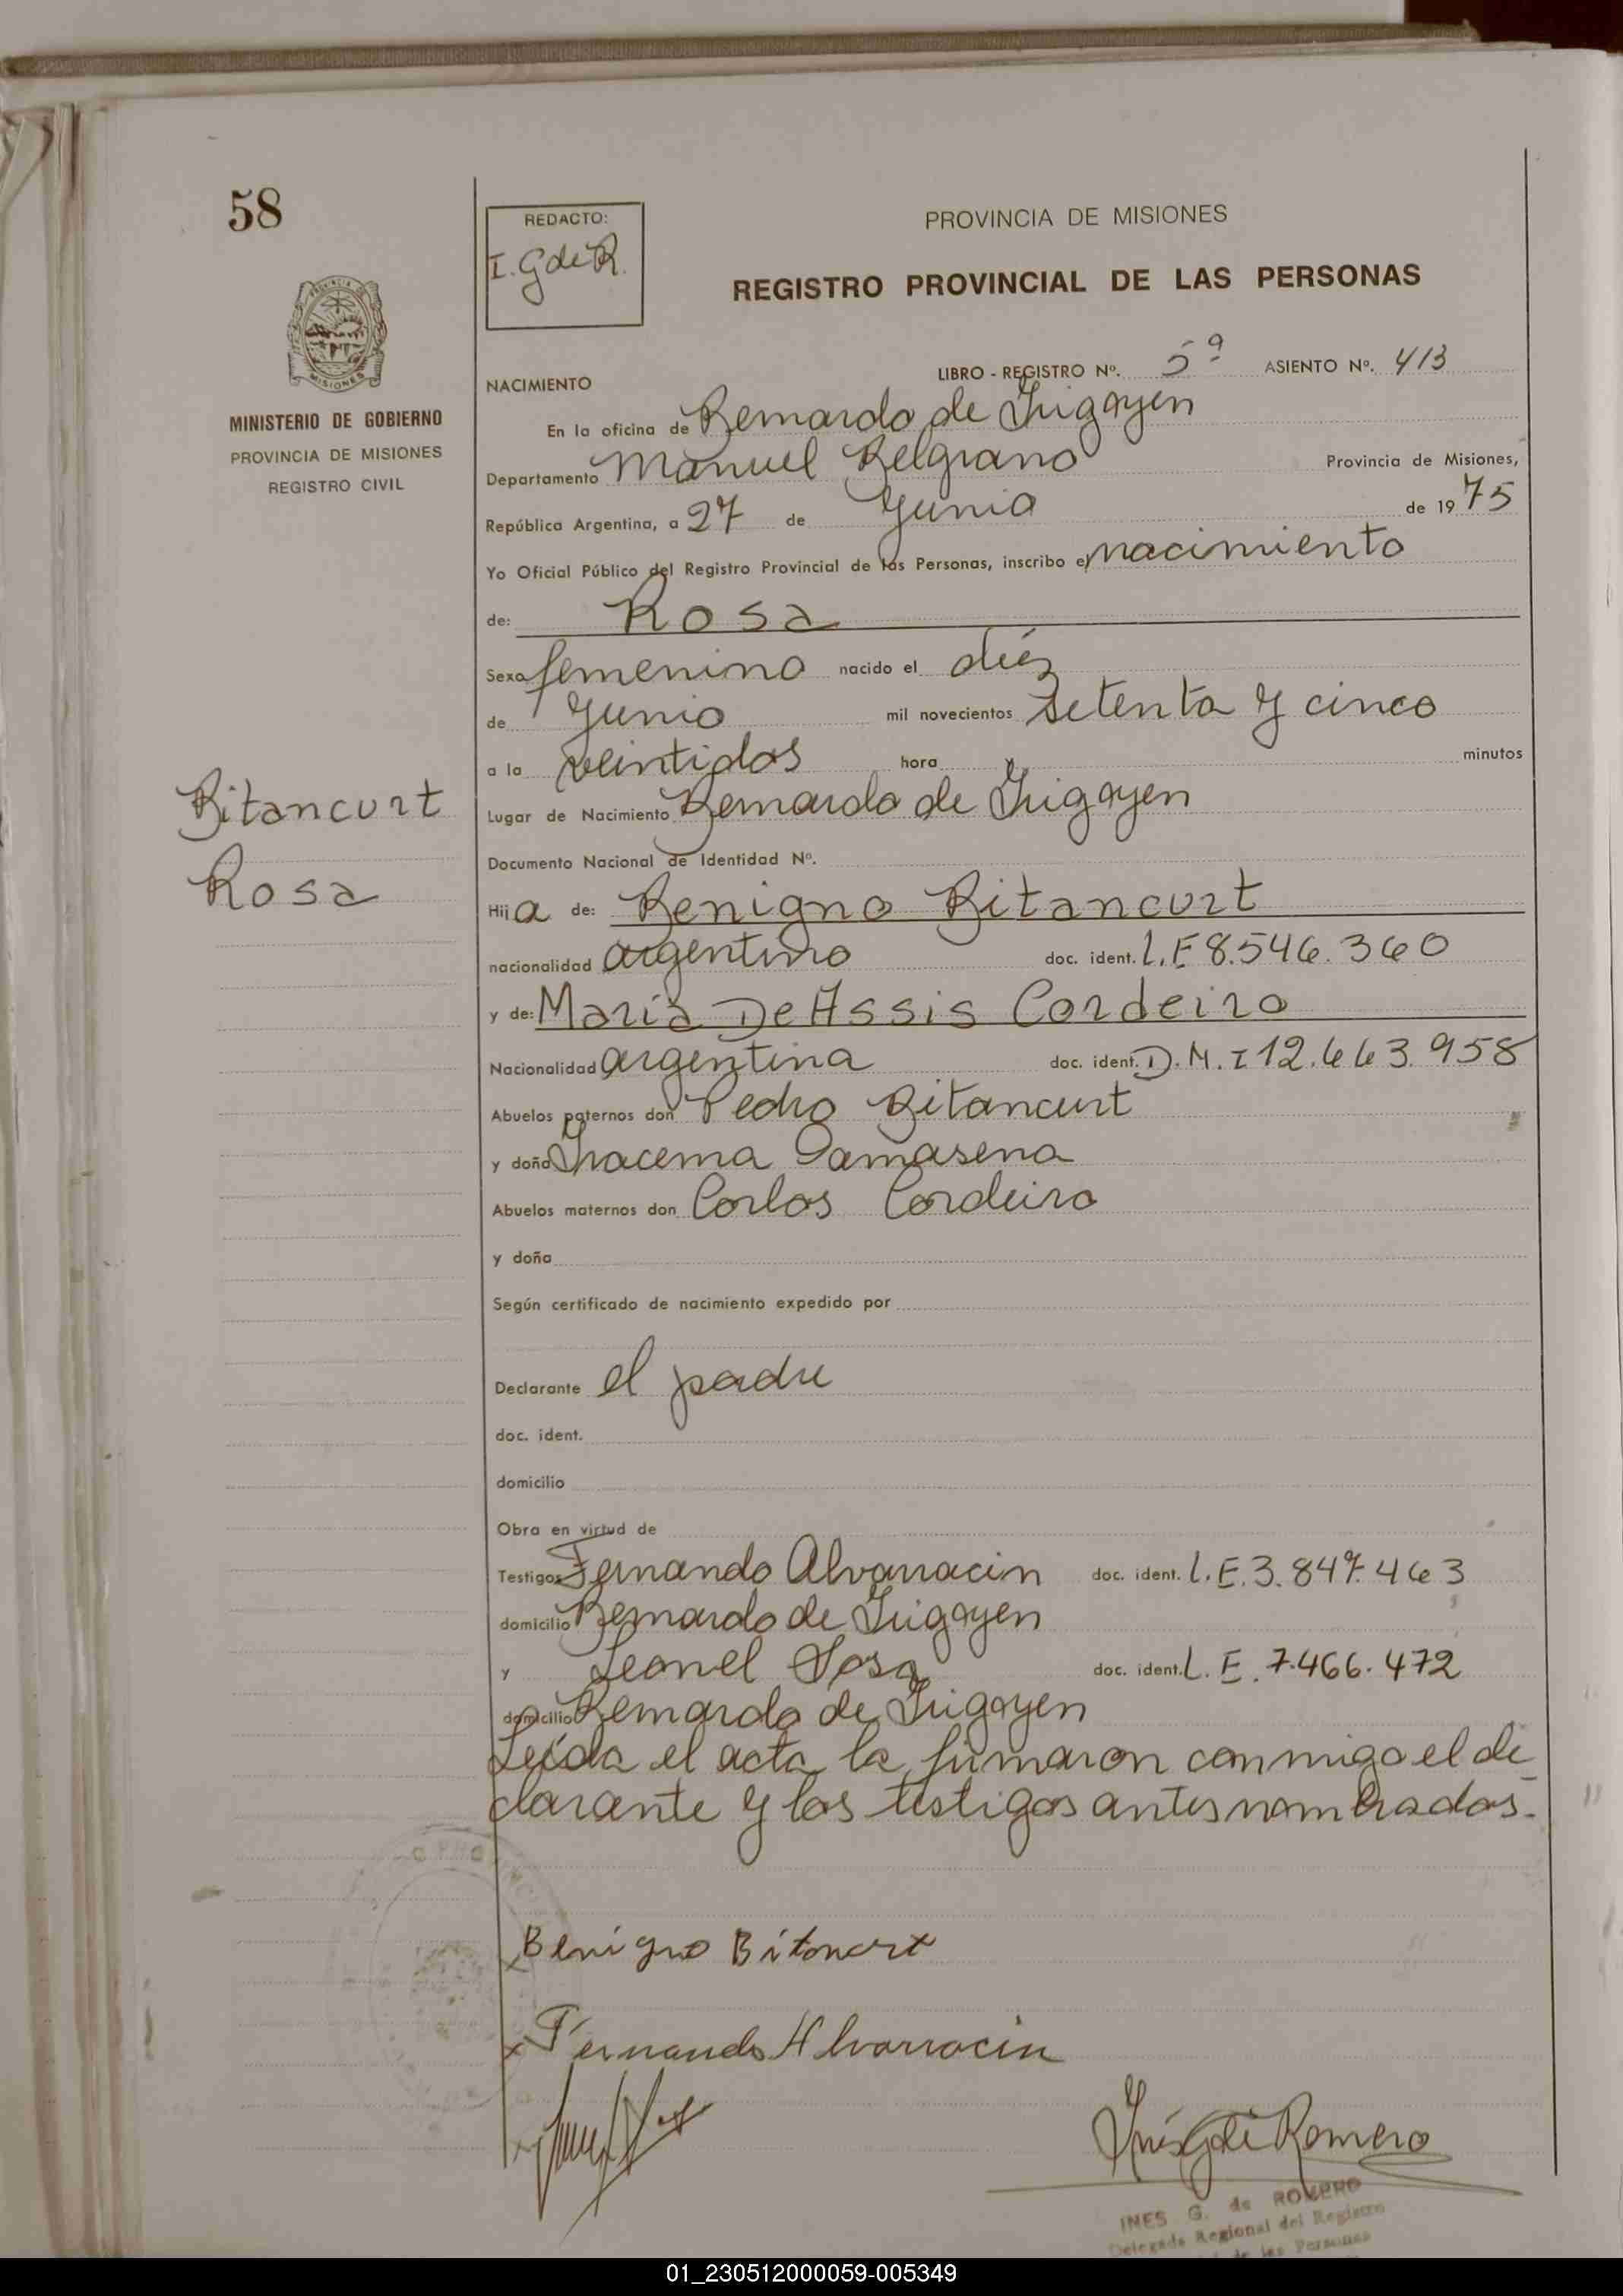 58
REDACTO:
I. G de R.
PROVINCIA DE MISIONES
REGISTRO PROVINCIAL DE LAS PERSONAS
MISIONES
MINISTERIO DE GOBIERNO
PROVINCIA DE MISIONES
REGISTRO CIVIL
LIBRO - REGISTRO Nº. 5º ASIENTO Nº. 413
NACIMIENTO
En la oficina de Bernardo de Irigoyen
Departamento Manuel Belgrano Provincia de Misiones,
República Argentina, a 27 de Junio de 1975
Yo Oficial Público del Registro Provincial de las Personas, inscribo el nacimiento
de: Rosa
Sexo femenino nacido el diéz
de Junio mil novecientos setenta y cinco
a la veintidos hora minutos
Bitancurt
Rosa
Lugar de Nacimiento Bernardo de Irigoyen
Documento Nacional de Identidad Nº.
Hija de: Benigno Bitancurt
nacionalidad argentino doc. ident. L.E 8.546.360
y de: María De Assis Cordeiro
Nacionalidad argentina doc. ident. D.N.I 12.663.958
Abuelos paternos don Pedro Bitancurt
y doña Iracema Damasena
Abuelos maternos don Carlos Cordeiro
y doña
Según certificado de nacimiento expedido por
Declarante el padre
doc. ident.
domicilio
Obra en virtud de
Testigos Fernando Alvarracin doc. ident. L.E.3.847.463
domicilio Bernardo de Irigoyen
y Leonel Sosa doc. ident. L.E. 7.466.472
domicilio Bernardo de Irigoyen
Leída el acta la firmaron conmigo el de
clarante y los testigos antes nombrados.-
Benigno Bitancurt
Fernando Alvarracin
Inés G de Romero
INES G. de ROMERO
Delegada Regional del Registro
de las Personas
01_230512000059-005349